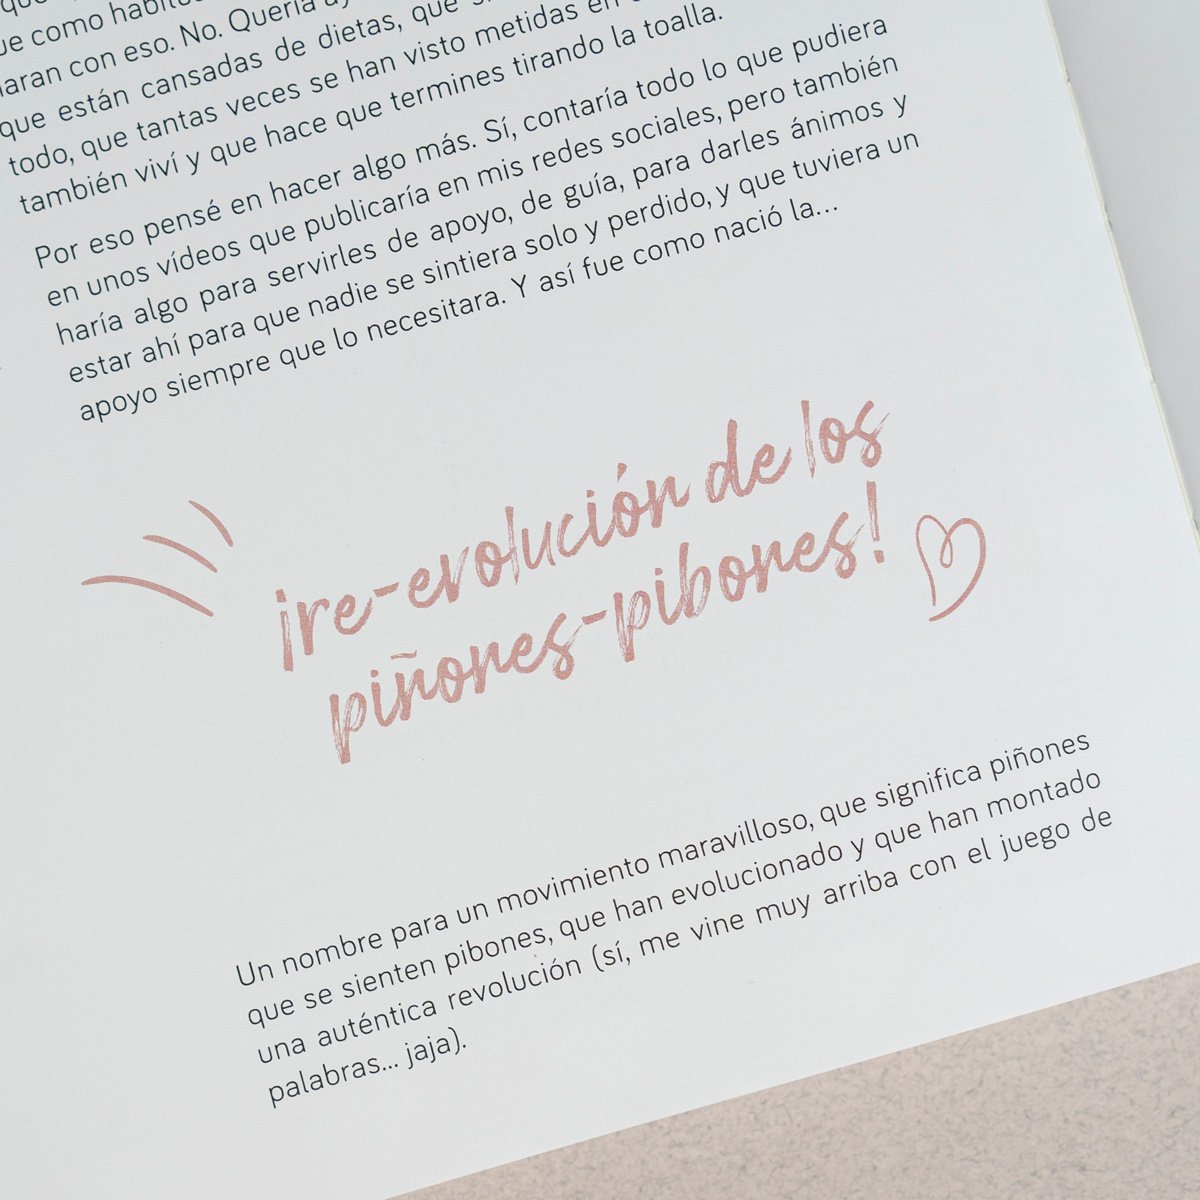 como
aran con eso. No. Quería
que están cansadas de dietas, que
todo, que tantas veces se han visto metidas en
también viví y que hace que termines tirando la toalla.
Por eso pensé en hacer algo más. Sí, contaría todo lo que pudiera
en unos vídeos que publicaría en mis redes sociales, pero también
haría algo para servirles de apoyo, de guía, para darles ánimos y
estar ahí para que nadie se sintiera solo y perdido, y que tuviera un
apoyo siempre que lo necesitara. Y así fue como nació la...
¡re-evolución de los
piñones-pibones!
Un nombre para un movimiento maravilloso, que significa piñones
que se sienten pibones, que han evolucionado y que han montado
una auténtica revolución (sí, me vine muy arriba con el juego de
palabras... jaja).